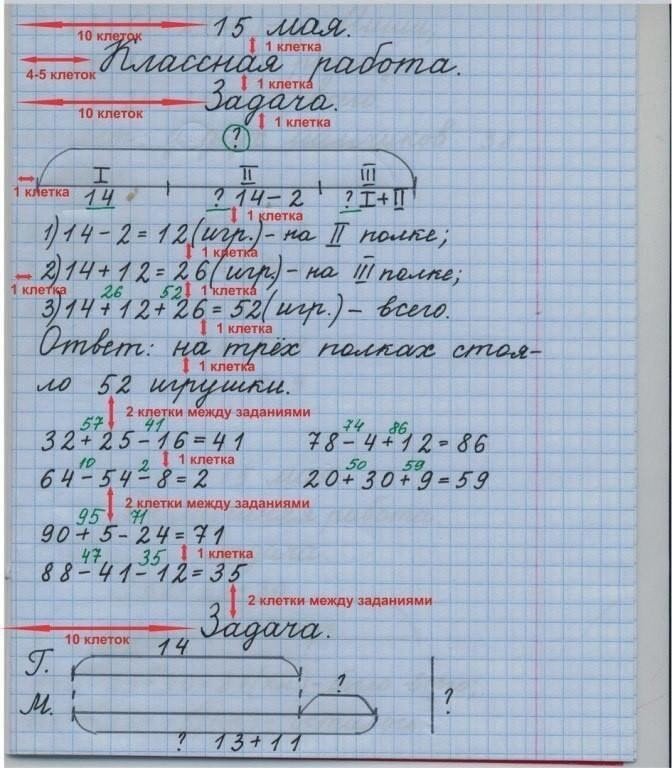 10 клеток 15 мая.
1 клетка
4-5 клеток Классная работа.
1 клетка
10 клеток Задача.
1 клетка
?
I II III
1 клетка 14 ? 14-2 ? I+II
1 клетка
1) 14-2=12 (игр.) - на II полке;
1 клетка
2) 14+12=26 (игр.) - на III полке;
1 клетка 1 клетка
26 52
3) 14+12+26=52 (игр.) - всего.
1 клетка
Ответ: на трёх полках стоя-
1 клетка
ло 52 игрушки.
2 клетки между заданиями
57 41 74 86
32+25-16=41 78-4+12=86
1 клетка
10 2 50 59
64-54-8=2 20+30+9=59
2 клетки между заданиями
95 71
90+5-24=71
1 клетка
47 35
88-41-12=35
2 клетки между заданиями
10 клеток Задача.
14
Г.
?
М. ?
? 13+11